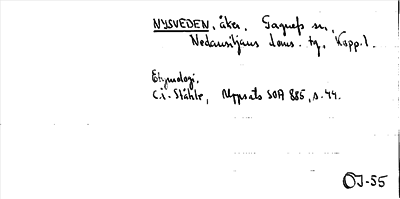 NYSVEDEN, åker, Gagnefs sn,
Nedansiljans doms. tg, Kopp. l.
Etymologi.
C.i. Ståhle, Uppsats SOA 885, s. 44.
OJ-55